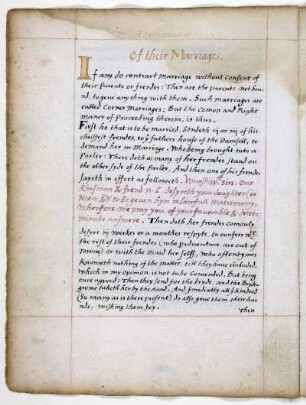 Of their Marriages.
If any do contract Marriage without consent of
their Parents or frendes: Then are the parents not bou
nd, to geue any thing with them. Such marriages are
called Corner Marriages; But the Comon and Right
maner of Proceeding therein, is thus.
First he that is to be married, Sendeth iij or iiij of his
chiefest frendes, to yͤ fathers house of the Damsell, to
demand her in Marriage. Who being brought into a
Parler: There doth as many of her frendes stand on
the other syde of the Parler. And then one of his frendes
sayeth in effect as followeth. Worshipfull Sirs: Our
Kinsman & frend N. L. desyreth your daughter or
Neece to be geuen him in lawfull matrimony,
Wherfore we pray you of your fauorable &
minate answere. Then doth her frendes comonly
desyre iij weekes or a monthes respyte, to conferr wᵗʰ
the rest of their frendes (who paduenture are out of
towne) or with the maid her self, who oftentymes
knoweth nothing of the matter, till they haue concluded,
Which in my opinion, is not to be Comended. But being
once agreed: Then they send for the bryde, and the Bryde
grome taketh her by the hand. And finially all yͤ kindred
(So many as is there present) do also geue them their han
des, wishing them joy.
Then